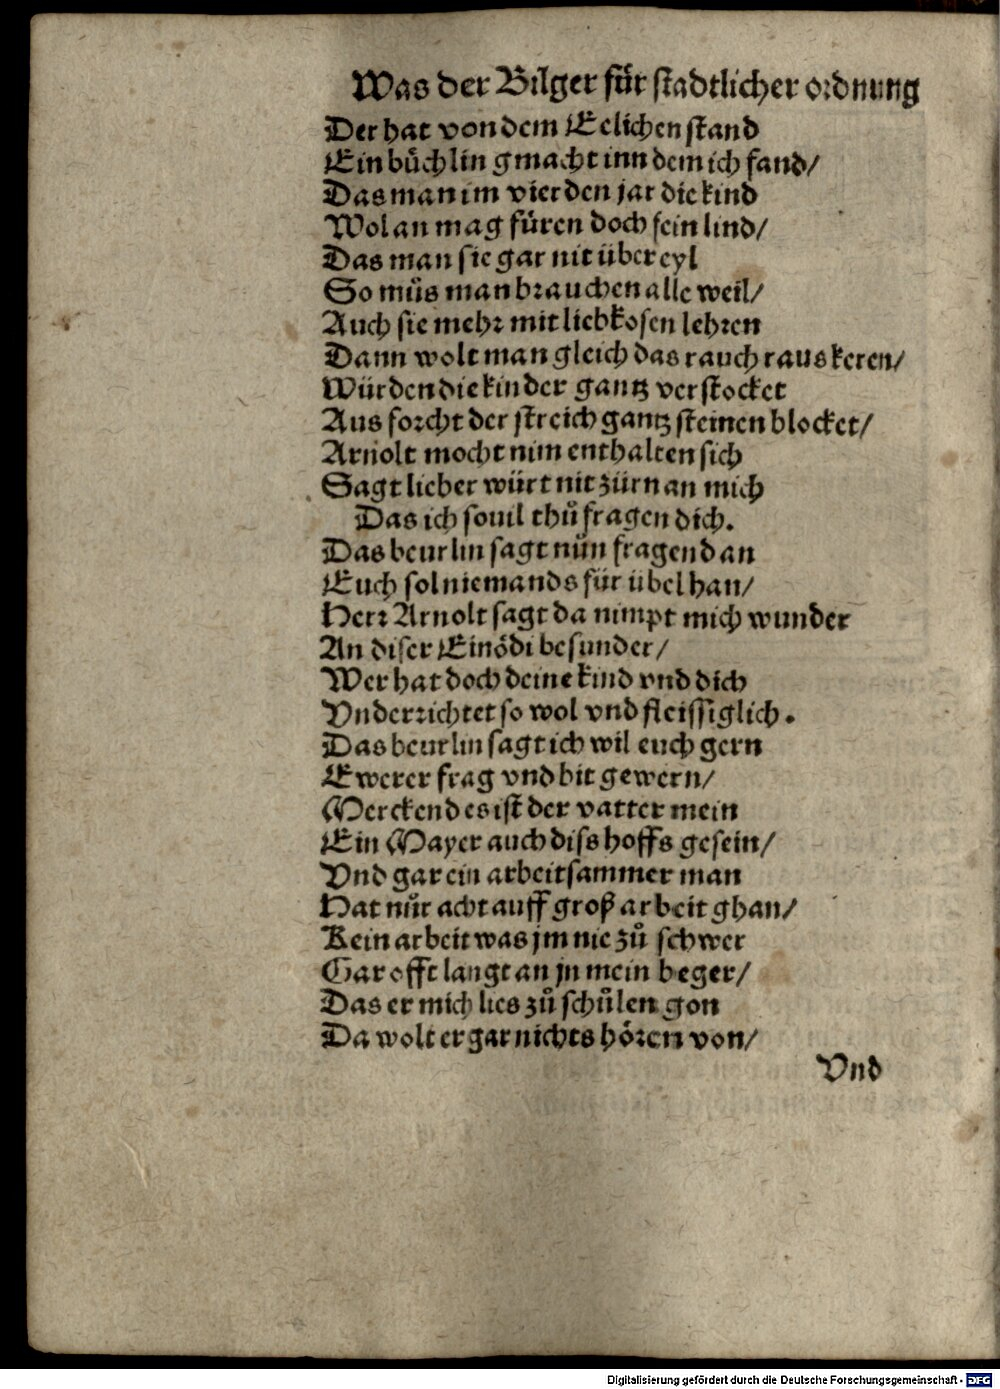 Was der Bilger für stadtlicher ordnung
Der hat von dem Eelichen stand
Ein buͤchlin gmacht inn dem ich fand/
Das man im vierden jar die kind
Wol an mag fuͤren doch fein lind/
Das man sie gar nit übereyl
So muͦs man brauchen alle weil/
Auch sie mehr mit liebkosen lehren
Dann wolt man gleich das rauch raus keren/
Würden die kinder gantz verstocket
Aus forcht der streich gantz steinen blocket/
Arnolt mocht nim enthalten sich
Sagt lieber würt nit zürn an mich
Das ich souil thuͦ fragen dich.
Das beurlin sagt nuͦn fragend an
Euch sol niemands für übel han/
Herr Arnolt sagt da nimpt mich wunder
An diser Einoͤdi besunder/
Wer hat doch deine kind vnd dich
Vnderrichtet so wol vnd fleissiglich.
Das beurlin sagt ich wil euch gern
Ewerer frag vnd bit gewern/
Merckend es ist der vatter mein
Ein Mayer auch diss hoffs gesein/
Vnd gar ein arbeitsammer man
Hat nuͦr acht auff groß arbeit ghan/
Kein arbeit was jm nie zuͦ schwer
Gar offt langt an jn mein beger/
Das er mich lies zuͦ schuͦlen gon
Da wolt er gar nichts hoͤren von/
Vnd
Digitalisierung gefördert durch die Deutsche Forschungsgemeinschaft - DFG